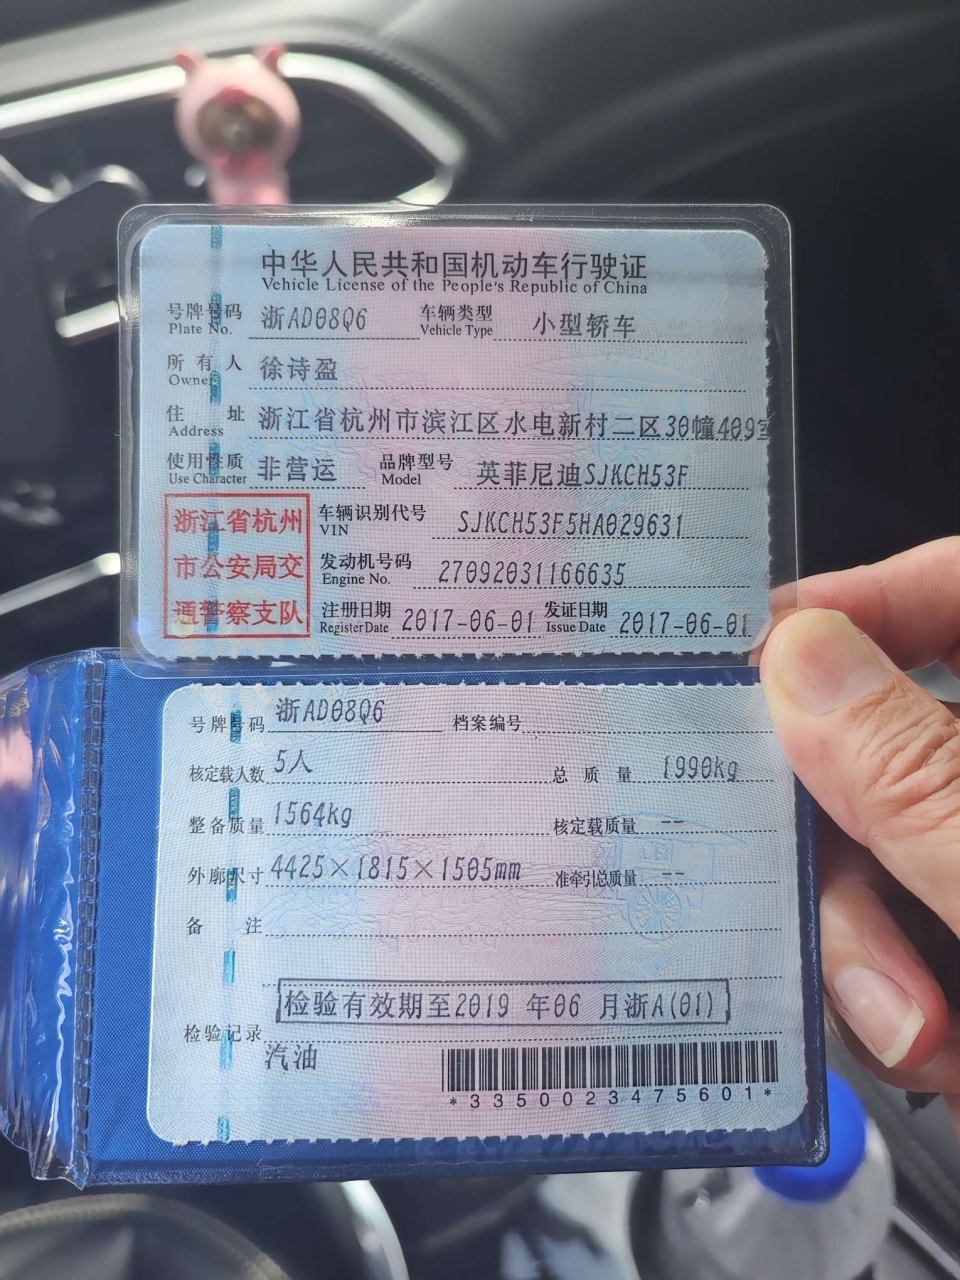 中华人民共和国机动车行驶证
Vehicle License of the People's Republic of China
号牌号码 浙AD08Q6 车辆类型 小型轿车
Plate No. Vehicle Type
所有人 徐诗盈
Owner
住址 浙江省杭州市滨江区水电新村二区30幢409室
Address
使用性质 非营运 品牌型号 英菲尼迪SJKCH53F
Use Character Model
浙江省杭州
市公安局交
通警察支队
车辆识别代号 SJKCH53F5HA029631
VIN
发动机号码 27092031166635
Engine No.
注册日期 2017-06-01 发证日期 2017-06-01
Register Date Issue Date
号牌号码 浙AD08Q6 档案编号
核定载人数 5人 总质量 1990kg
整备质量 1564kg 核定载质量 --
外廓尺寸 4425×1815×1505mm 准牵引总质量 --
备注
检验有效期至2019 年06 月浙A(01)
检验记录
汽油
*3350023475601*